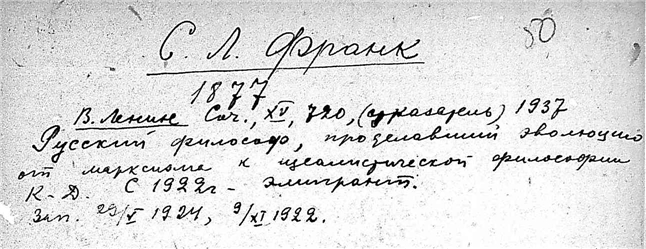 50
С. Л. Франк
1877
В. Ленин Соч., XV, 720, (указатель) 1937
Русский философ, проделавший эволюцию
от марксизма к идеалистической философии
К.-Д. С 1922г - эмигрант.
Зап. 29/V 1924, 9/XI 1922.